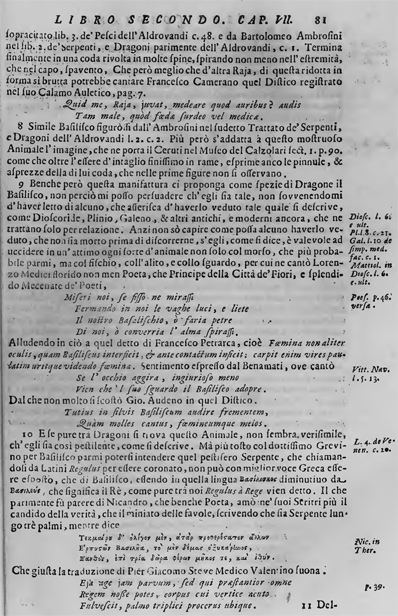 LIBRO SECONDO. CAP. VII. 81
sopracitato lib. 3. de' Pesci dell'Aldrovandi c. 48. e da Bartolomeo Ambrosini
nel lib. 2. de' serpenti, e Dragoni parimente dell'Aldrovandi, c. 1. Termina
finalmente in una coda rivolta in molte spine, spirando non meno nell'estremità,
che nel capo, spavento. Che però meglio che d'altra Raja, di questa ridotta in
forma sì brutta potrebbe cantare Francesco Camerano quel Distico registrato
nel suo Calamo Auletico, pag. 7.
Quid me, Raja, juvat, medeare quod auribus è audis
Tam male, quod fœda surdeo vel medica.
8 Simile Basilisco figurò sì dall'Ambrosini nel sudetto Trattato de' Serpenti,
e Dragoni dell'Aldrovandi l. 2. c. 2. Più però s'addatta à questo mostruoso
Animale l'imagine, che ne porta il Ceruti nel Museo del Calzolari sect. 1. p. 90.
come che oltre l'essere d'intaglio finissimo in rame, esprime anco le pinnule, &
asprezze della di lui coda, che nelle prime figure non si osservano.
9 Benche però questa manifattura ci proponga come spezie di Dragone il
Basilisco, non perciò mi posso persuadere ch'egli sia tale, non sovenendomi
d'haver letto di alcuno, che asserisca d'haverlo veduto tale quale si descrive,
come Dioscoride, Plinio, Galeno, & altri antichi, e moderni ancora, che ne
trattano solo per relazione. Anzi non sò capire come possa alcuno haverlo ve-
duto, che non sia morto prima di discorrerne, s'egli, come si dice, è valevole ad
uccidere in un'attimo ogni sorte d'animale non solo col morso, che più proba-
bile parmi, ma col fischio, coll'alito, e collo sguardo, per cui ne cantò Loren-
zo Medici fiorido non men Poeta, che Principe della Città de' Fiori, e splendi-
do Mecenate de' Poeti,
Miseri noi, se fisso ne mirassi
Fermando in noi le vaghe luci, e liete
Il nostro Basilischio, ò faria petre
Di noi, ò converria l'alma spirassi.
Alludendo in ciò a quel detto di Francesco Petrarca, cioè Fœmina non aliter
oculis, quam Basiliscus interficit, & ante contactum inficit: carpit enim vires pau-
latim uritque videndo fœmina. Sentimento espresso dal Benamati, ove cantò
Se l'occhio aggira, ingiurioso meno
Vien che'l suo sguardo il Basilisco adopre.
Dal che non molto si scostò Gio. Audeno in quel Distico.
Tutius in silvis Basiliscum audire frementem,
Quàm molles cantus, fœmineumque melos.
10 E se pure tra Dragoni si trova questo Animale, non sembra verisimile,
ch'egli sia così pestilente, come si descrive. Mà più tosto col dottissimo Grevi-
no per Basilisco parmi potersi intendere quel pestifero Serpente, che chiaman-
dosi da Latini Regulus per essere coronato, non può con miglior voce Greca esse-
re esposto, che di Basilisco, essendo in quella lingua Βασιλίσκος diminutivo da
Βασιλεὺς, che significa il Rè, come pure tra noi Regulus à Rege vien detto. Il che
parimente fù parere di Nicandro, che benche Poeta, amò ne' suoi Scritti più il
candido della verità, che il miniato delle favole, scrivendo che sia Serpente lun-
go trè palmi, mentre dice
Che giusta la traduzione di Pier Giacomo Steve Medico Valentino suona.
Eja age jam parvum, sed qui præstantior omne
Regem nosse potes, corpus cui vertice acuto
Fulvescit, palmo triplici procerus ubique.
11 Del-
Diosc. l. 6.
c. ult.
Pl. l. 8. c. 21.
Gal. l. 10 de
simp. med.
fac. c. 1.
Mattiol. in
Diosc. l. 6.
c. ult.
Poes. p. 46.
versa.
Vitt. Nav.
l. 5. 13.
L. 4. de Ve-
nen. c. 20.
Nic. in
Ther.
p. 39.